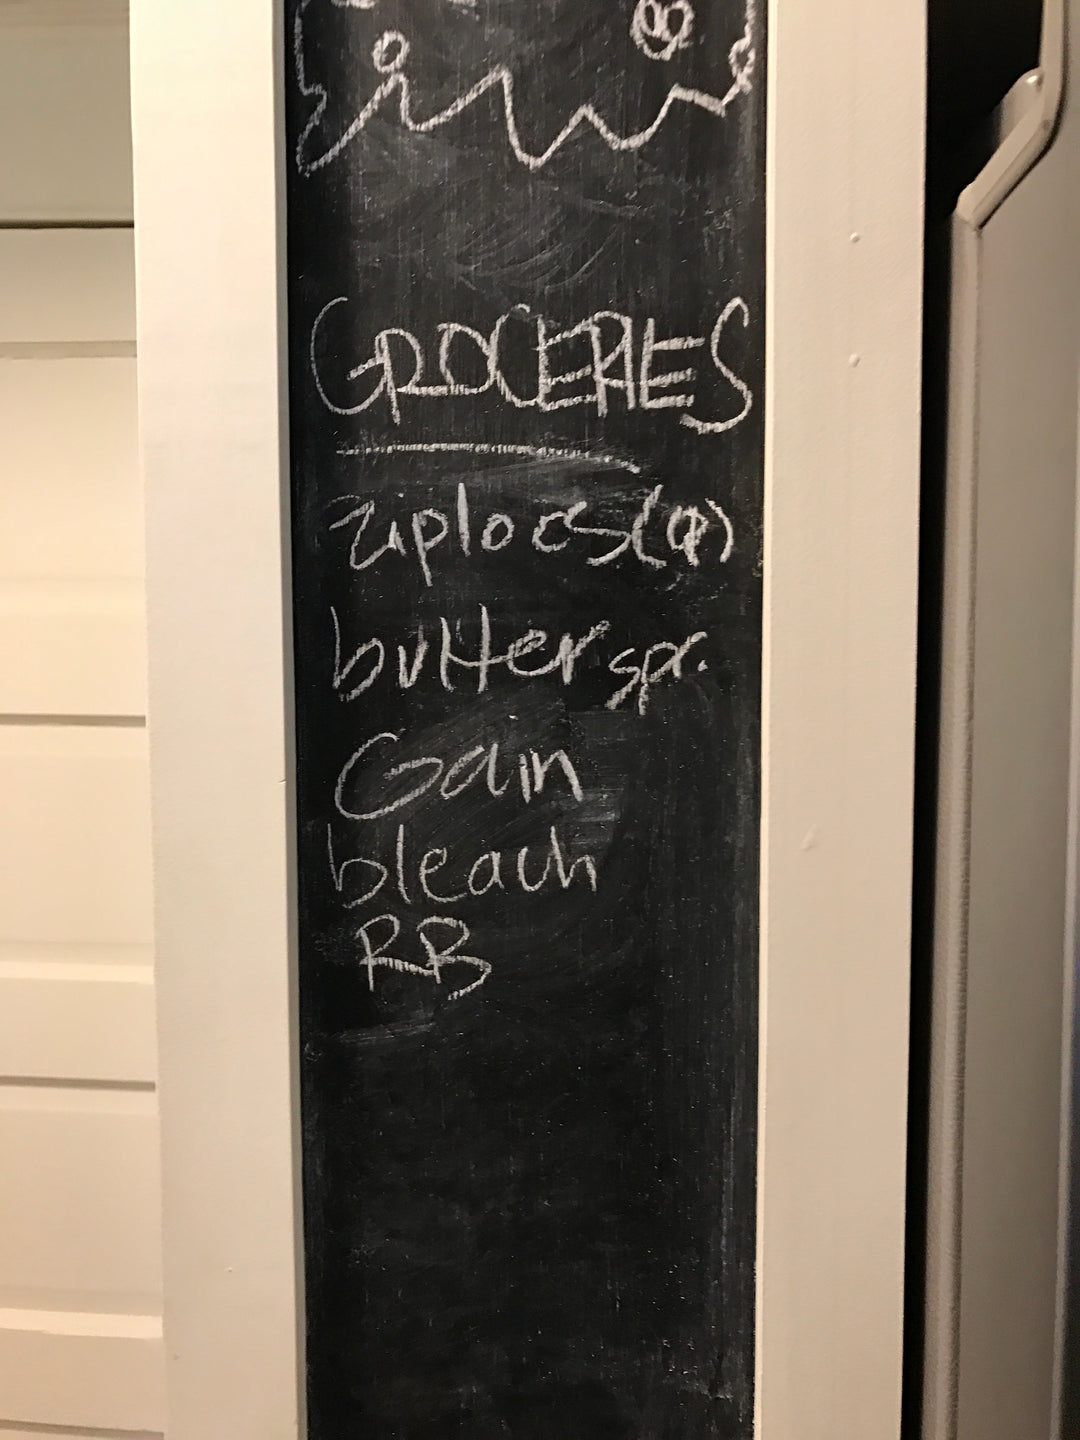 GROCERIES
ziplocs(q)
butter spr.
Gain
bleach
RB